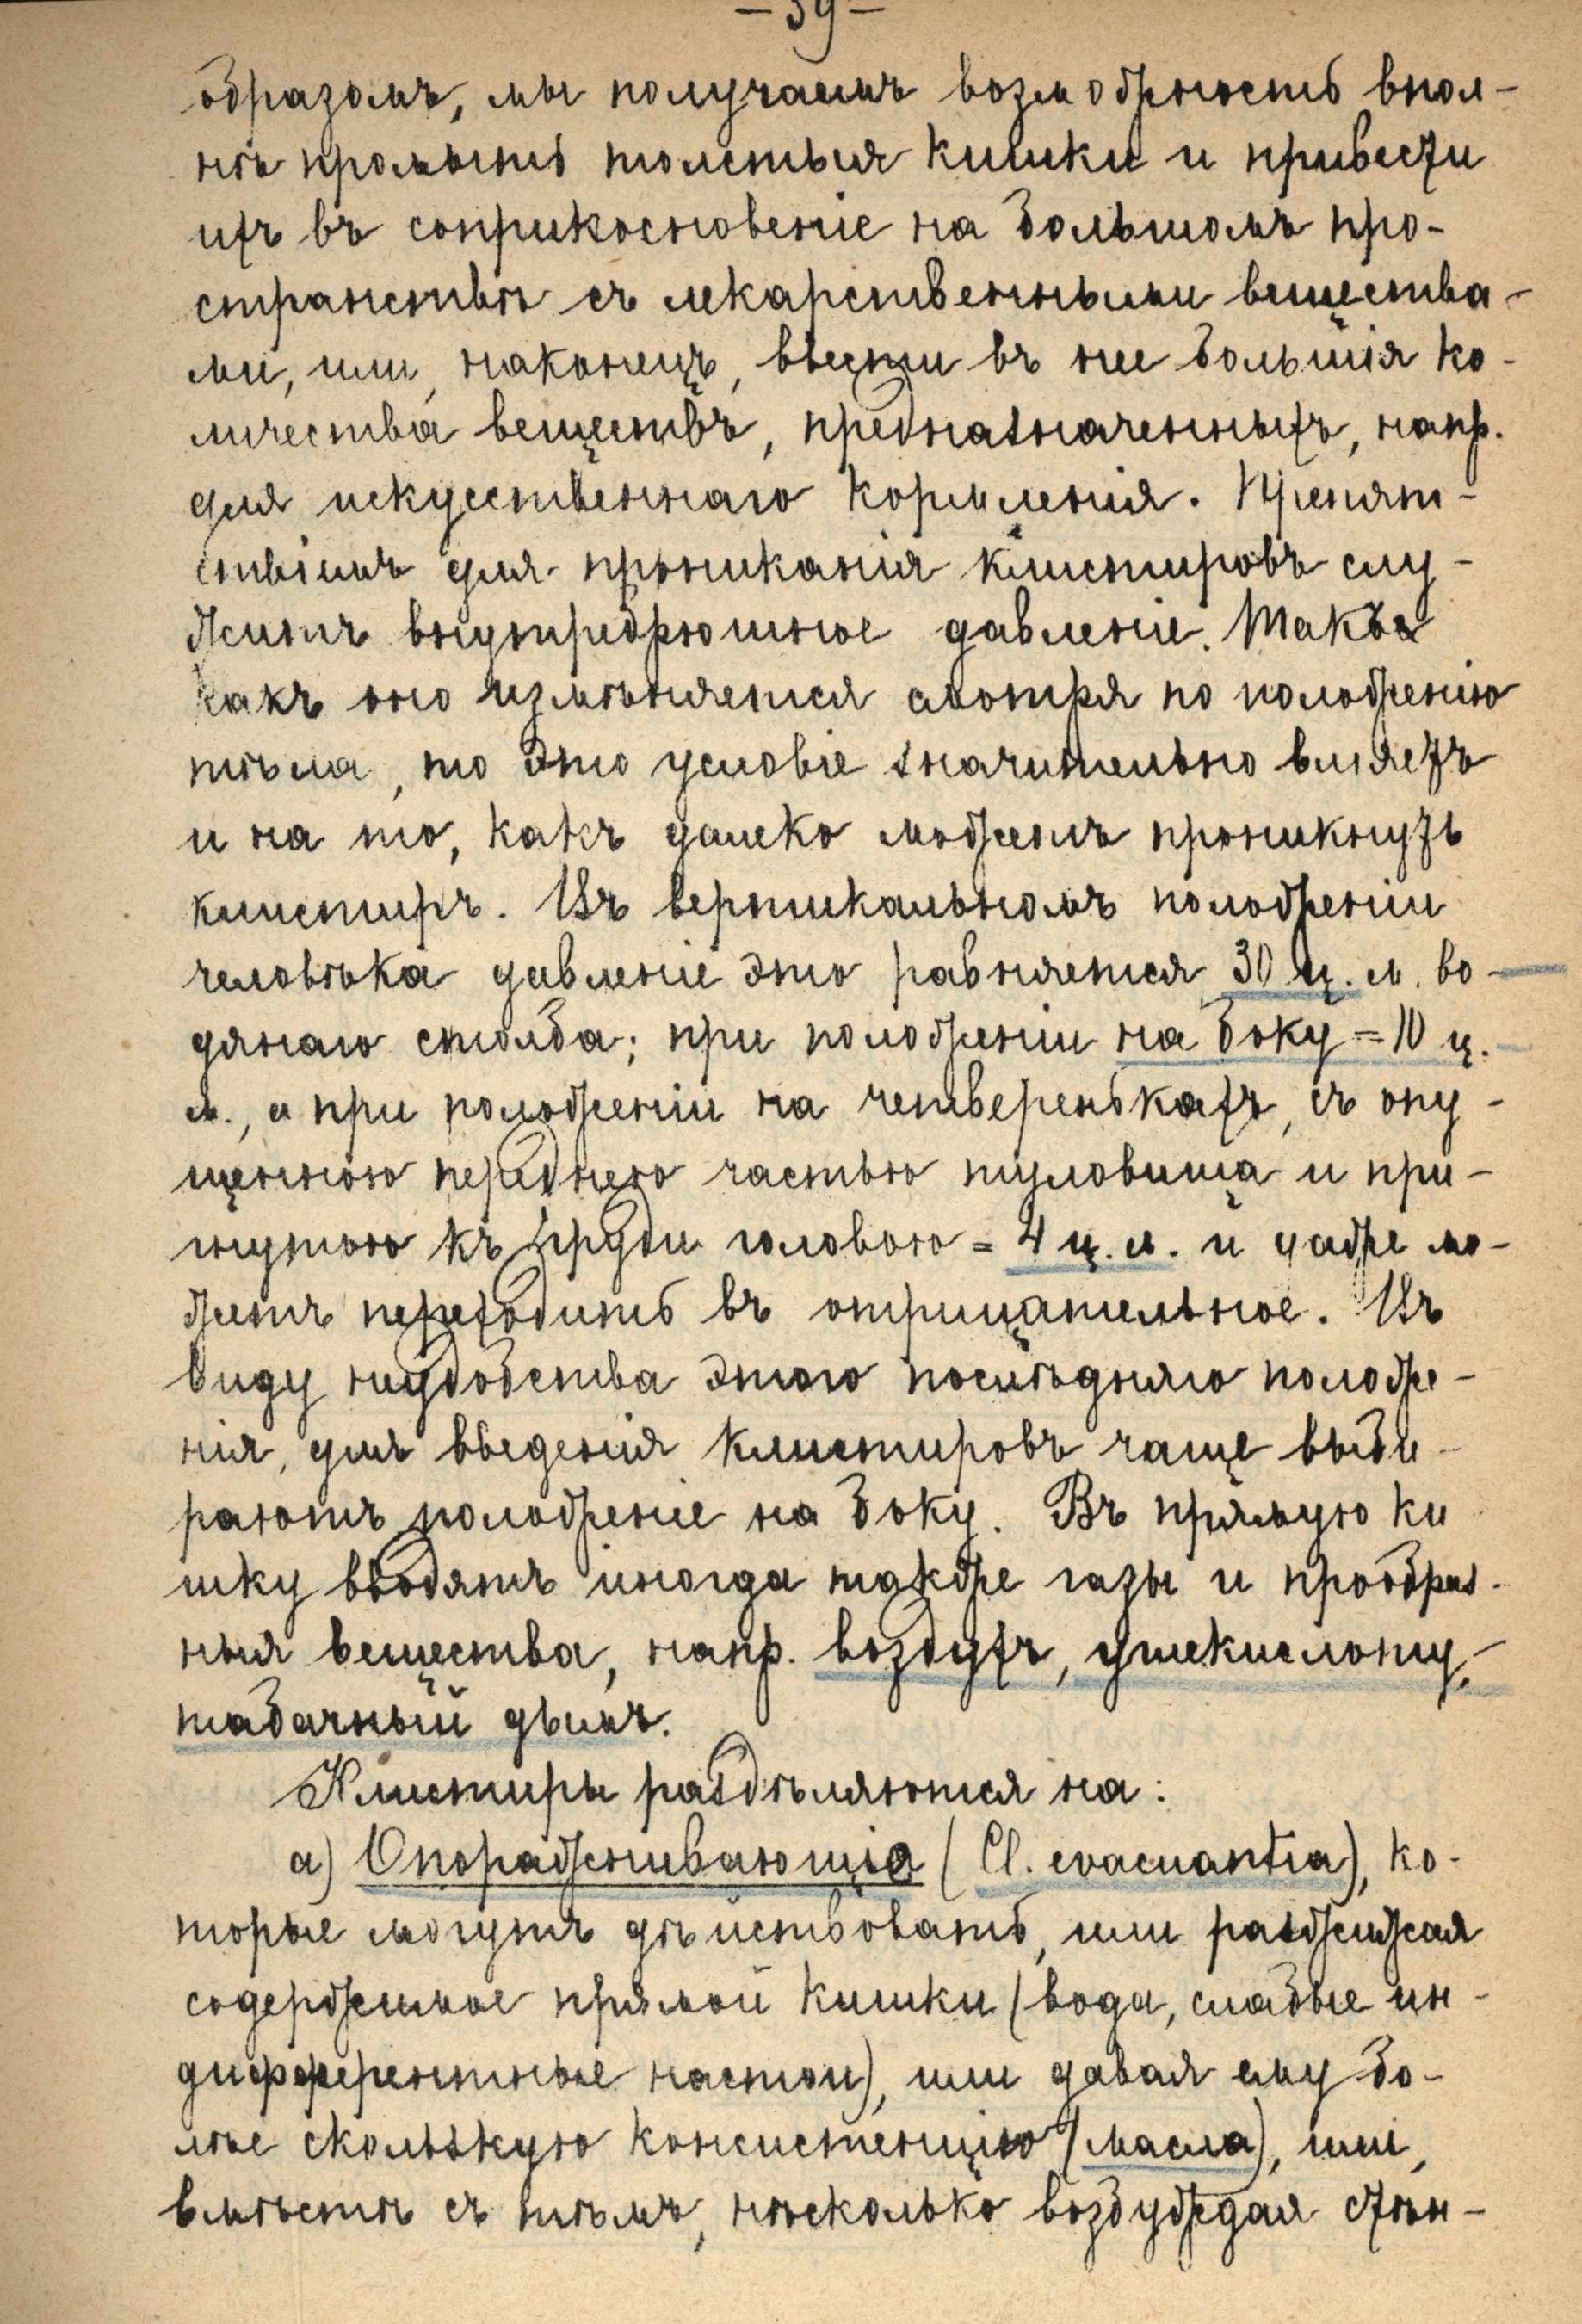 — 39 —
образомъ, мы получаемъ возможность впол-
нѣ промыть толстыя кишки и привести
ихъ въ соприкосновеніе на большомъ про-
странствѣ съ лекарственными вещества-
ми, или, наконецъ, ввести въ нее большія ко-
личества веществъ, предназначенныхъ, напр.
для искусственнаго кормленія. Препят-
ствіемъ для проникания клистировъ слу-
житъ внутрибрюшное давленіе. Такъ
какъ оно измѣняется смотря по положенію
тѣла, то это условіе значительно вліяетъ
и на то, какъ далеко можетъ проникнуть
клистиръ. Въ вертикальномъ положеніи
человѣка давленіе это равняется 30 ц. м. во-
дянаго столба; при положеніи на боку = 10 ц.
м., а при положеніи на четверенькахъ, съ опу-
щенною переднею частью туловища и при-
гнутою къ груди головою = 4 ц. м. и даже мо-
жетъ переходить въ отрицательное. Въ
виду неудобства этого послѣдняго положе-
нія, для введенія клистировъ чаще выби-
раютъ положеніе на боку. Въ прямую ки
шку вводятъ иногда также газы и
ныя вещества, напр. воздухъ, углекислоту,
табачный дымъ.
Клистиры раздѣляются на:
а) Опоражнивающіе (Cl. evacuantia), ко-
торые могутъ дѣйствовать, или разжижая
содержимое прямой кишки (вода, слабые ин-
дифферентные настои), или давая ему бо-
лѣе скользкую консистенцію (масла), или,
вмѣстѣ съ тѣмъ, нѣсколько возбуждая стѣн-